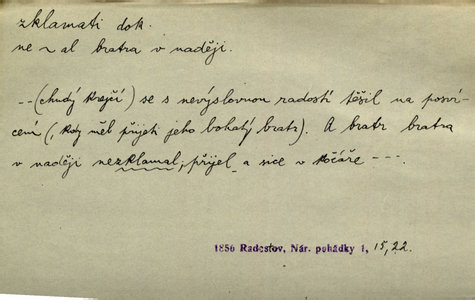 zklamati dok.
ne ~ al bratra v naději.
-- (chudý krejčí) se s nevýslovnou radostí těšil na posví-
cení (, kdy měl přijeti jeho bohatý bratr). A bratr bratra
v naději nezklamal, přijel a sice v kočáře ---.
1856 Radostov, Nár. pohádky 1, 15, 22.